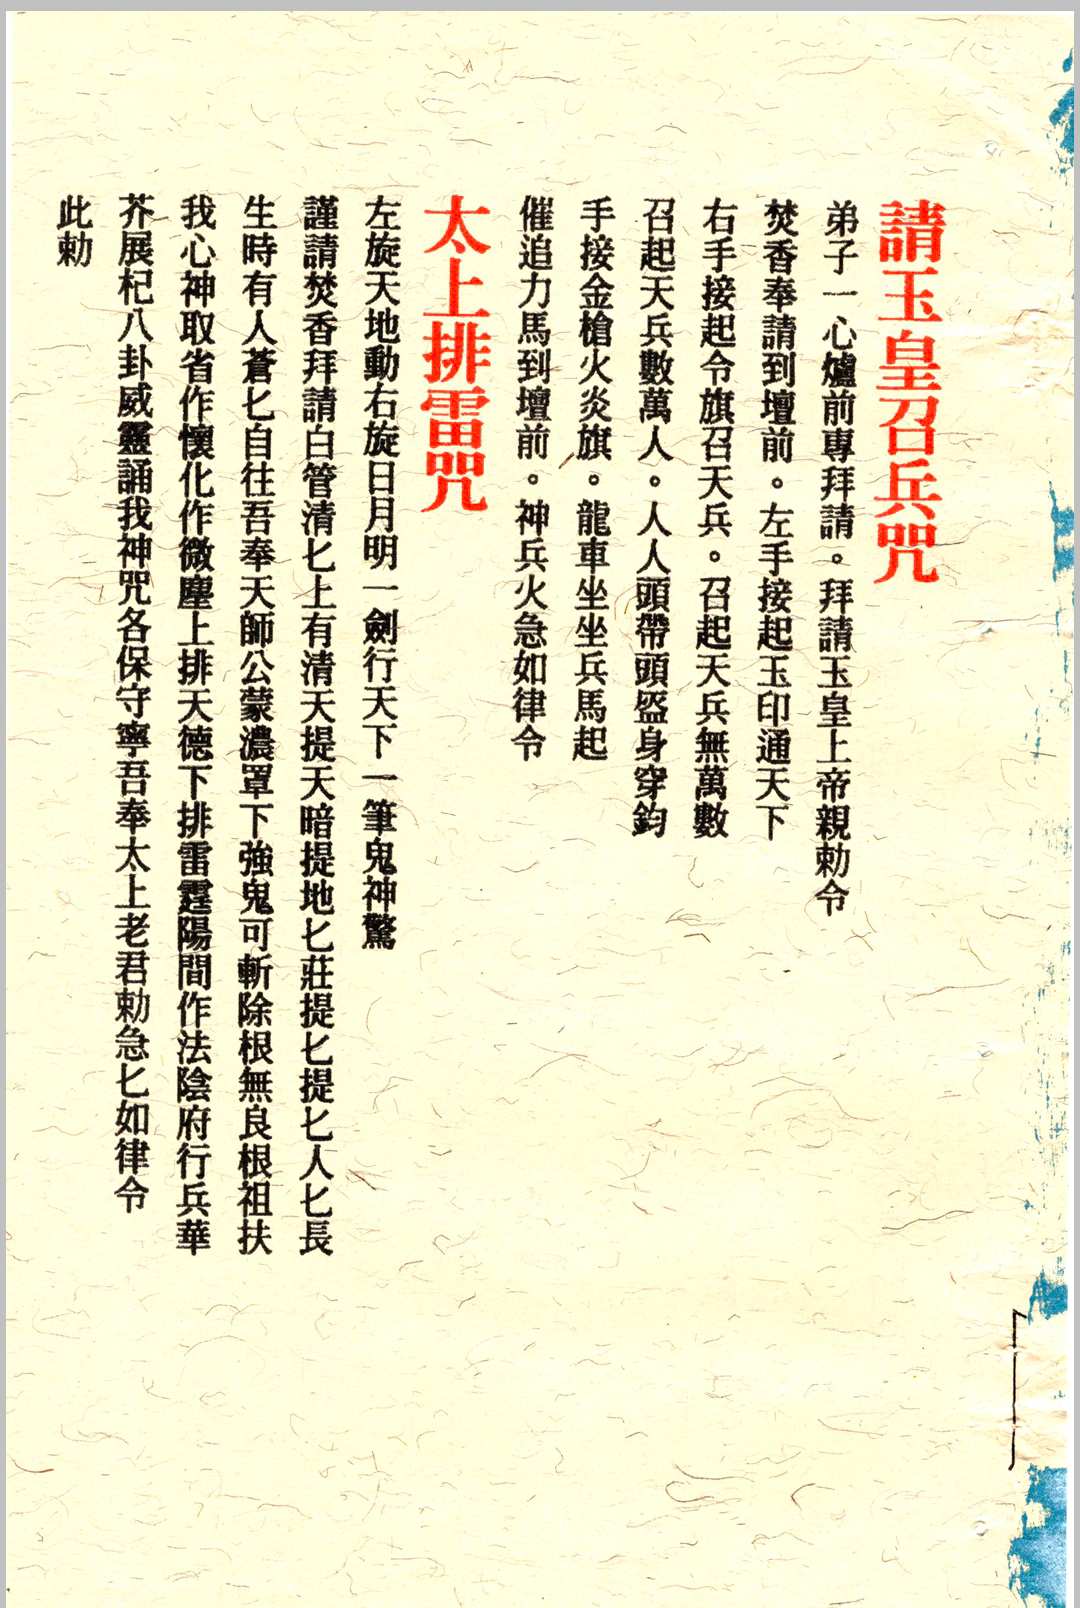 請玉皇召兵咒
弟子一心爐前專拜請。拜請玉皇上帝親勅令
焚香奉請到壇前。左手接起玉印通天下
右手接起令旗召天兵。召起天兵無萬數
召起天兵數萬人。人人頭帶頭盔身穿鈞
手接金槍火炎旗。龍車坐坐兵馬起
催追力馬到壇前。神兵火急如律令
太上排雷咒
左旋天地動右旋日月明一劍行天下一筆鬼神驚
謹請焚香拜請白管清匕上有清天提天暗提地匕莊提匕提匕人匕長
生時有人蒼匕自往吾奉天師公蒙濃罩下強鬼可斬除根無良根祖扶
我心神取省作懷化作微塵上排天德下排雷霆陽間作法陰府行兵華
芥展杞八卦威靈誦我神咒各保守寧吾奉太上老君勅急匕如律令
此勅